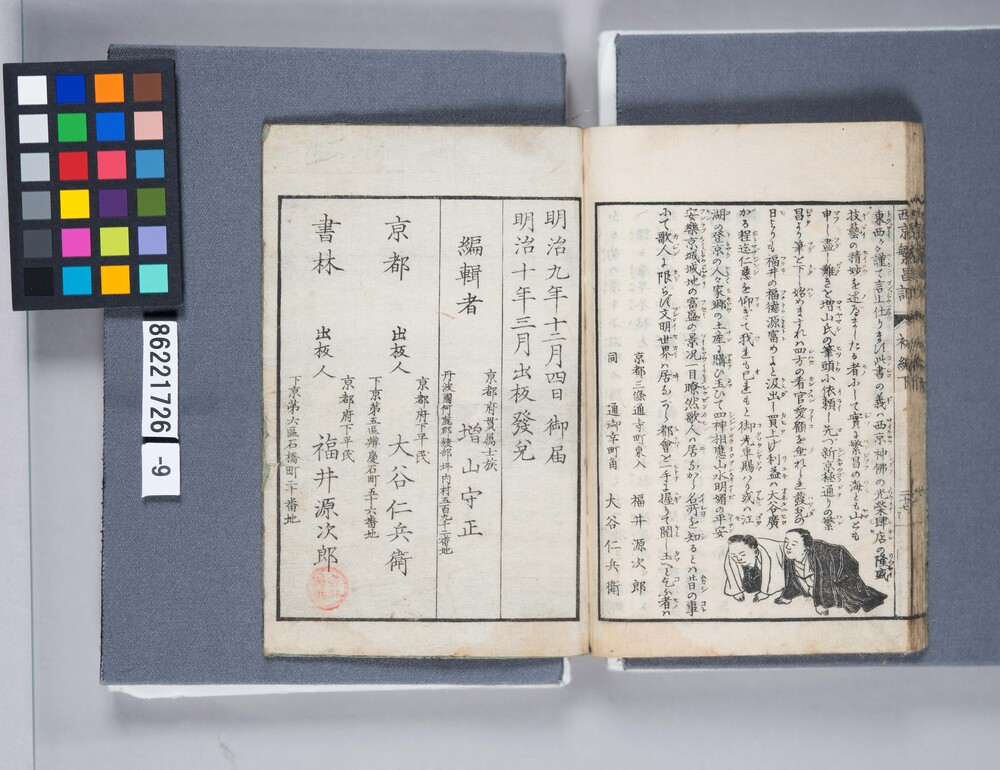 西京繁昌記
初編下
東西々謹て言上仕りまする此書の義ハ西京神佛の光榮肆店の隆盛
技藝の精妙を述なましたる者にして實に繁昌の海とも山とも
申し盡し難きを増山氏の筆頭に依頼し先づ新京極通りの繁
昌より筆を下し始めますれバ四方の看官愛顧を垂れ
日よりも福井の福徳源富めよと汲出し買上げ利益ハ大谷廣
がる程迄仁慈を仰ぎて我も已も御光車賜ハり或ハ江
湖の登京の人々家郷の土産に購ひ玉ひて四神相應山水明媚の平安
安樂京城域地の富盛の景况一目瞭然歌人ハ居ながら名所を知るとハ昔の事
にて歌人に限らず文明世界ハ居ながら都會を一手に握りて閲し玉へと乞ふ者ハ
京都三條通寺町東入
福井源次郎
同 通御幸町角
大谷仁兵衞
明治九年十二月四日御届
明治十年三月出板發兌
編輯者
京都府貫属士族
増山守正
丹波國何鹿郡綾部坪内村五百九十二番地
京都
出板人
京都府下平民
大谷仁兵衞
下京第五區辨慶石町五十六番地
書林
出板人
京都府下平民
福井源次郎
下京第六區石橋町二十番地
86221726
-9